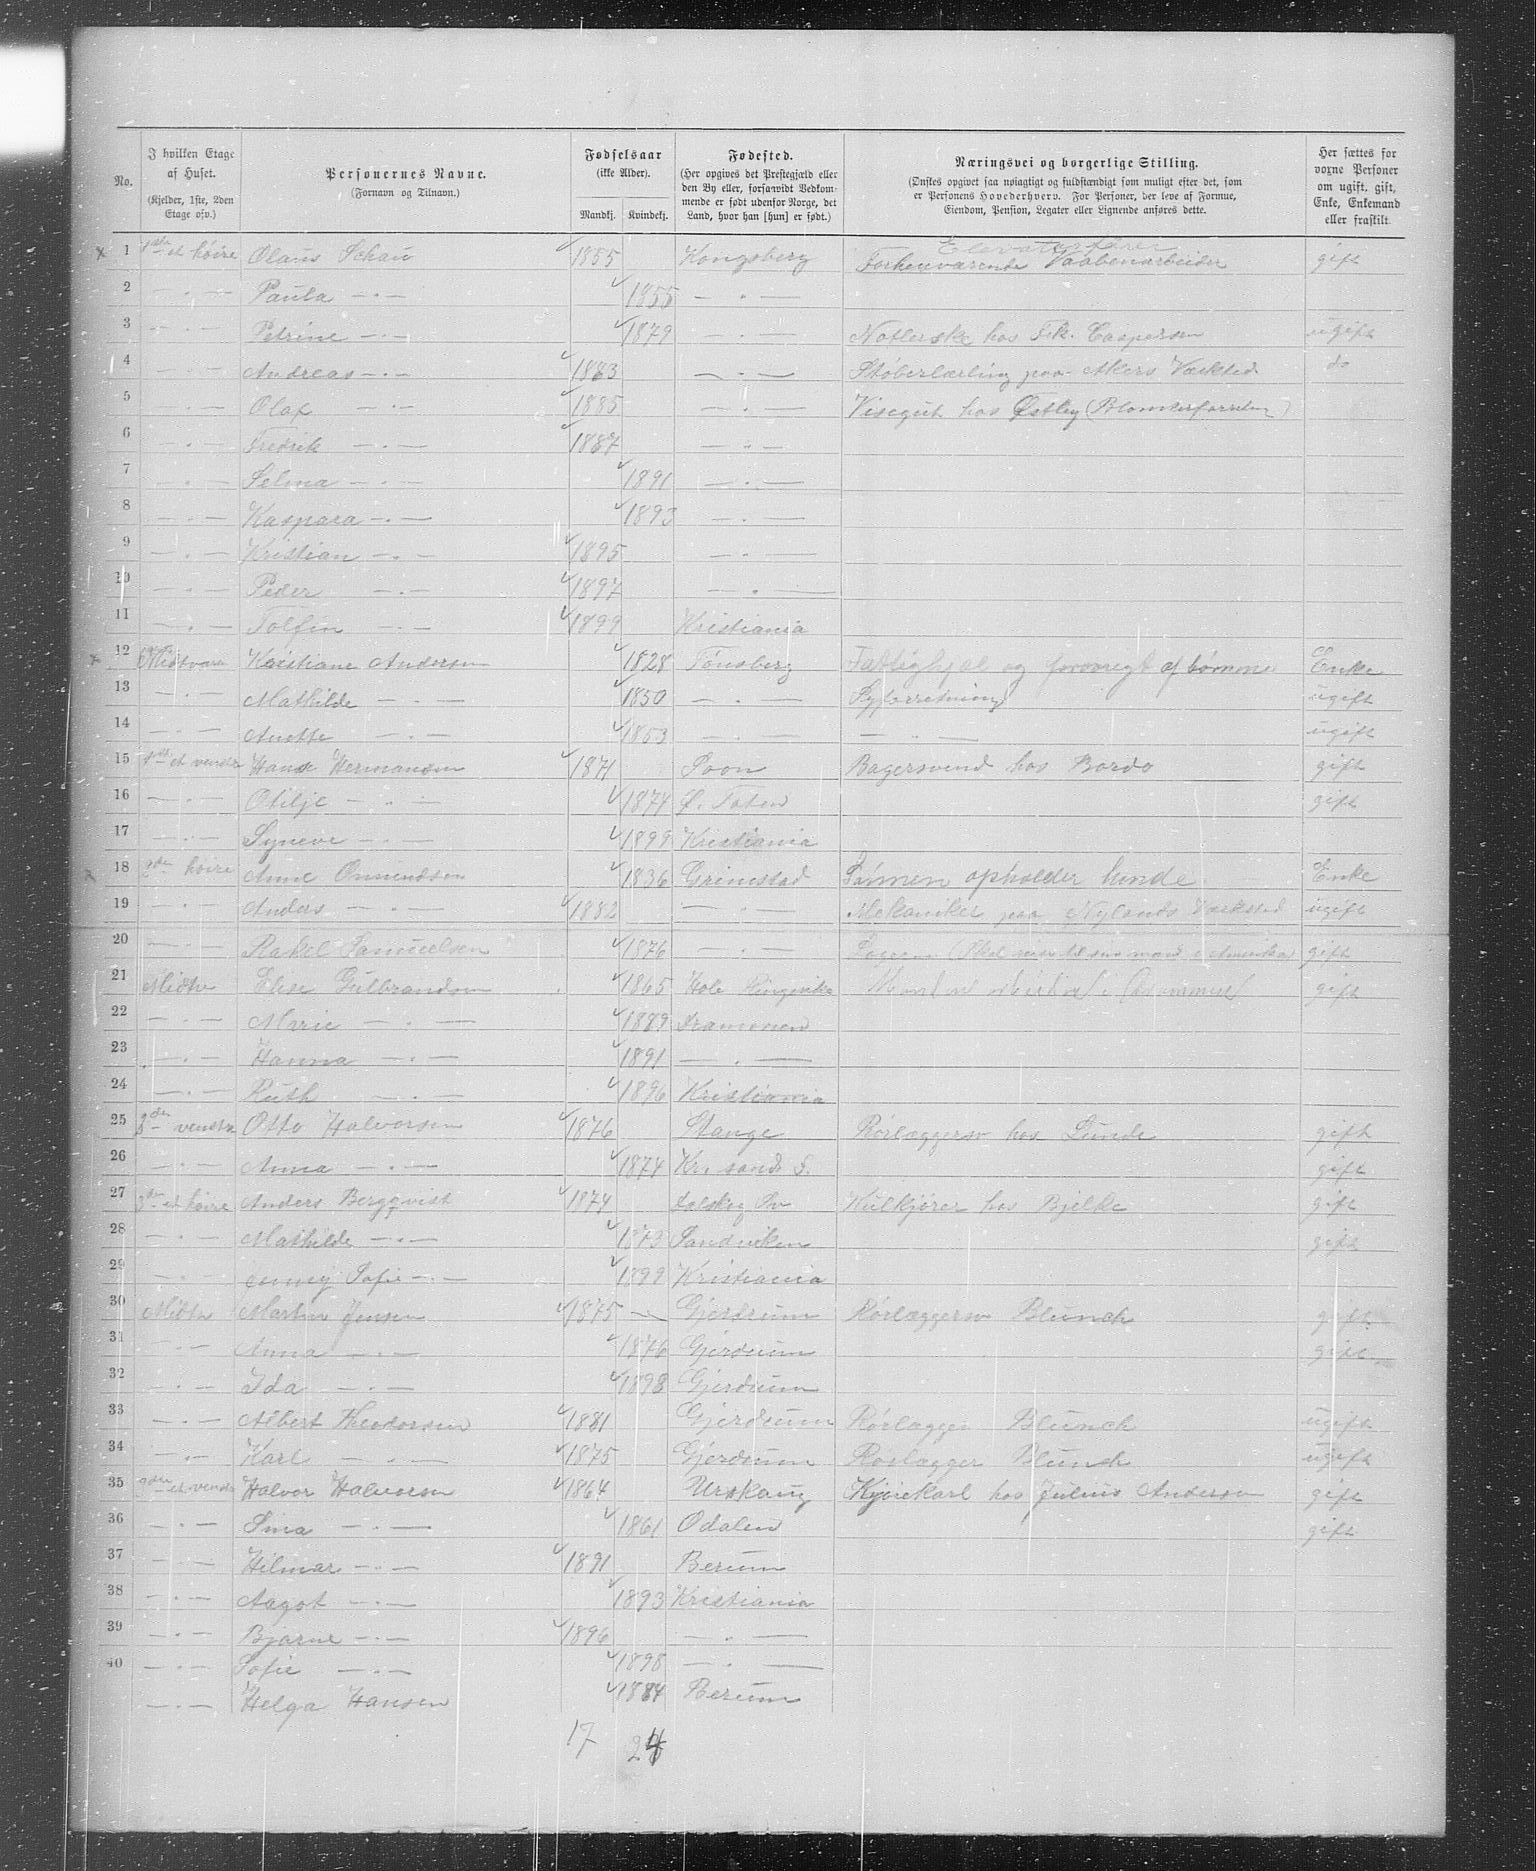 No. | I hvilken Etage af Huset. (Kjelder, 1ste, 2den Etage osv.) | Personernes Navne. (Fornavn og Tilnavn.) | Fødselsaar (ikke Alder). Mandkj. Kvindekj. | Fødested. (Her opgives det Prestegjæld eller den By eller, forsaavidt Vedkommende er født udenfor Norge, det Land, hvor han [hun] er født.) | Næringsvei og borgerlige Stilling. (Ønskes opgivet saa nøiagtigt og fuldstændigt som muligt efter det, som er Personens Hovederhverv. For Personer, der leve af Formue, Eiendom, Pension, Legater eller Lignende anføres dette. | Her sættes for vorne Personer om ugift, gift, Enke, Enkemand eller fraskilt.
1 1ste et høire Olaus Schau 1855 Kongsberg Forhenværende Vaabenarbeider gift
2 — " — Paula — " — 1855 — " —
3 — " — Petrine — " — 1879 — " — hos Frk. Caspersen ugift
4 — " — Andreas — " — 1883 — " — Støberlærling paa Akers Værksted do
5 — " — Olaf — " — 1885 — " — Visegut hos Østby (Blomsterforretn)
6 — " — Fredrik — " — 1887 — " —
7 — " — Selma — " — 1891 — " —
8 — " — Kaspara — " — 1893 — " —
9 — " — Kristian — " — 1895 — " —
10 — " — Peder — " — 1897 — " —
11 — " — Tolfin — " — 1899 Kristiania
12 Kristiane Andersen 1828 Tønsberg Fattighjæl og forsørget af børnene Enke
13 — " — Mathilde — " — 1850 — " — Syforretning ugift
14 — " — Anette — " — 1853 — " — — " — ugift
15 1ste et venstre Hans Hermansen 1871 Soon Bagersvend hos Bordo gift
16 — " — Otilje — " — 1874 Ø. Toten gift
17 — " — Syneve — " — 1899 Kristiania
18 2den høire Anne Omundsen 1836 Grimstad Sønnen opholder hende Enke
19 — " — Anders — " — 1882 — " — Mekaniker paa Nylands Værksted ugift
20 — " — Rakel Samuelsen 1876 — " — mand i Amerika) gift
21 Midtre Elise Gulbrandsen 1865 Hole Ringerike gift
22 — " — Marie — " — 1889 Drammen
23 — " — Hanna — " — 1891 — " —
24 — " — Ruth — " — 1896 Kristiania
25 2den venstre Otto Halvorsen 1876 Stange Rørlæggersv hos Lunde gift
26 — " — Anna — " — 1874 Kr. sand S. gift
27 3die et høire Anders Bergqvist 1874 Kulkjører hos Bjelke gift
28 — " — Mathilde — " — 1873 Sandviken gift
29 — " — Jenny Sofie — " — 1899 Kristiania
30 Midtre Martin Jensen 1875 Gjerdrum Rørlæggersv Blunch gift
31 — " — Anna — " — 1876 Gjerdrum gift
32 — " — Ida — " — 1898 Gjerdrum
33 — " — Albert Theodorsen 1881 Gjerdrum Rørlægger Blunch ugift
34 — " — Karl — " — 1875 Gjerdrum Rørlægger Blunch ugift
35 3die et venstre Halvor Halvorsen 1864 Urskaug Kjørekarl hos Julius Andersen gift
36 — " — Sina — " — 1861 Odalen gift
37 — " — Hilmar — " — 1891 Berum
38 — " — Aagot — " — 1893 Kristiania
39 — " — Bjarne — " — 1896 — " —
40 — " — Sofie — " — 1898 — " —
— " — Helga Hansen 1884 Berum
17 24